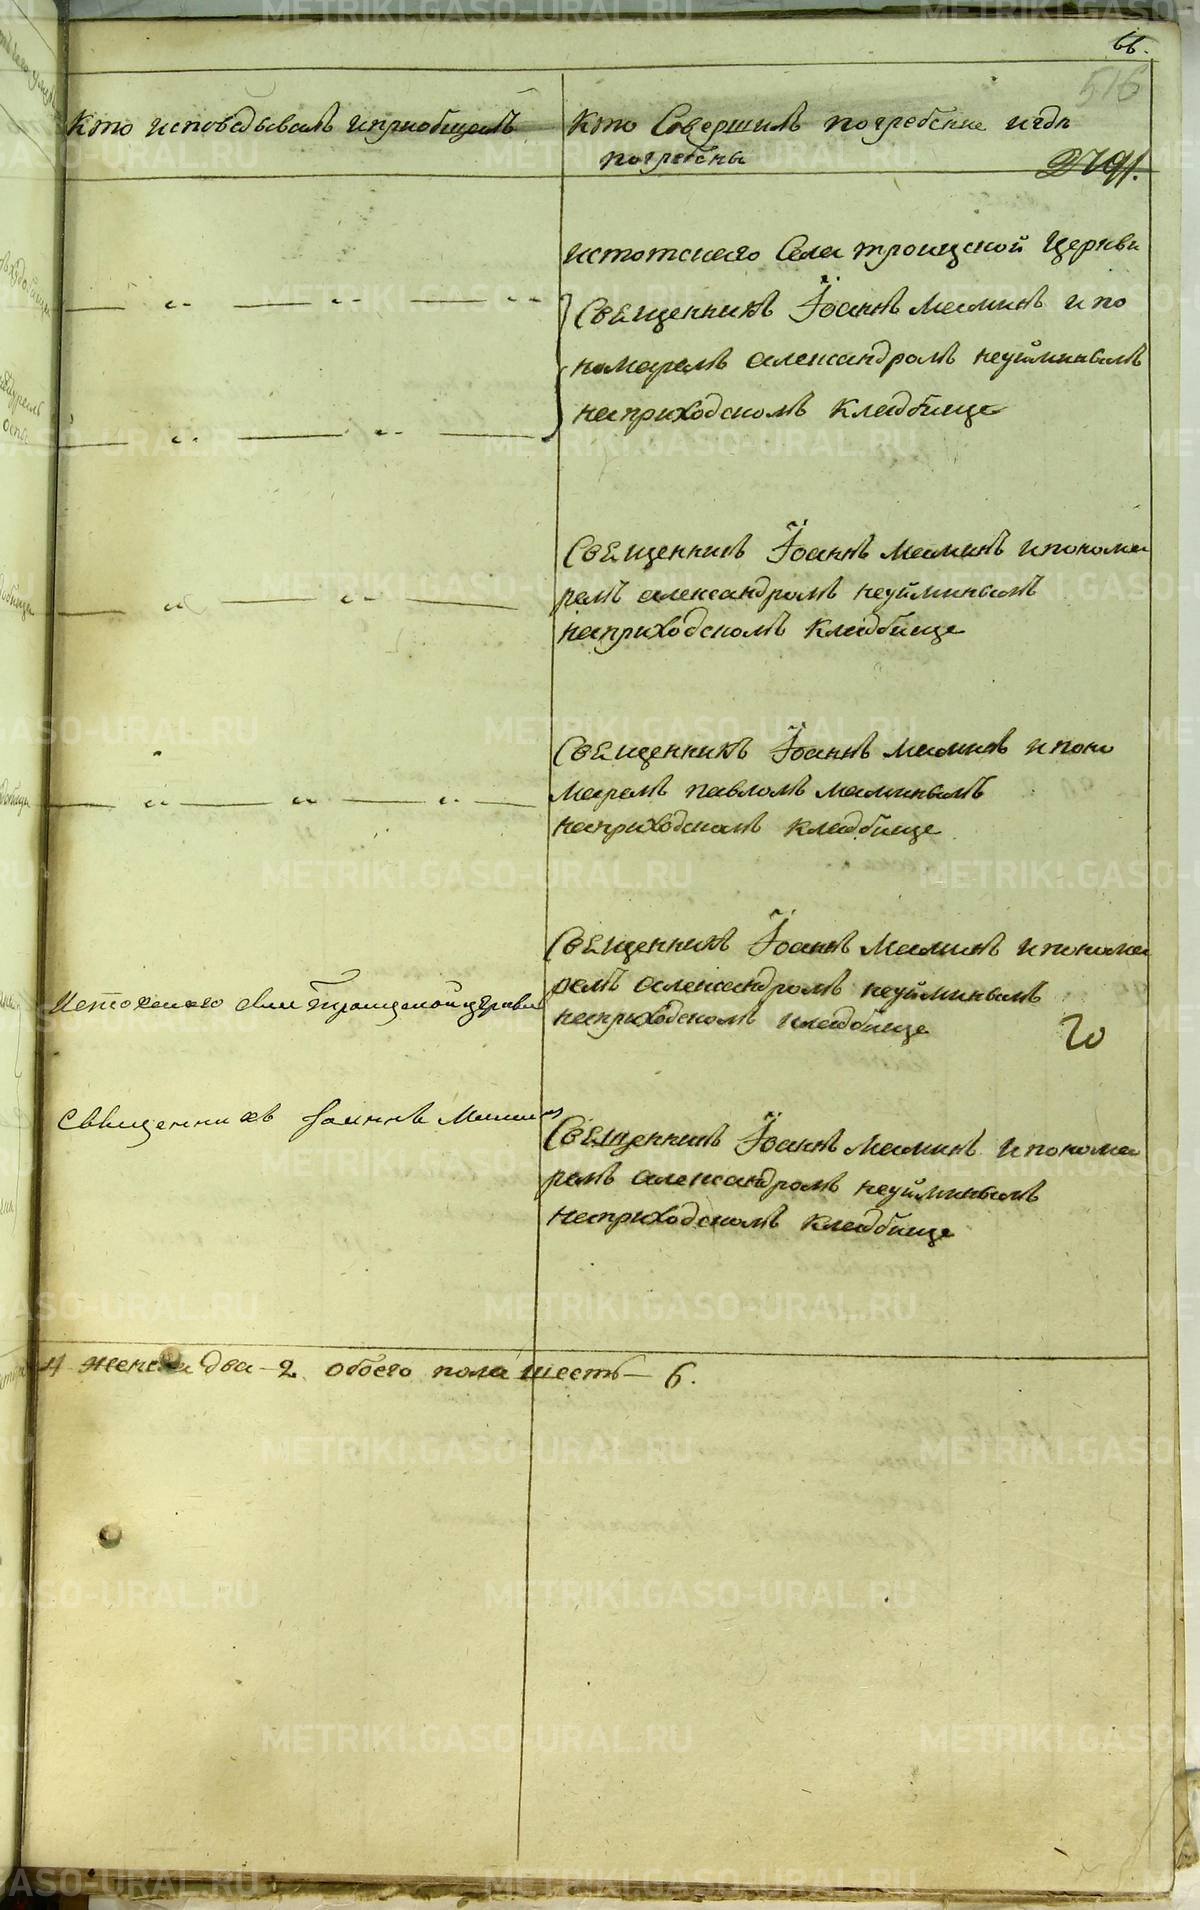 66.
516
Кто исповѣдывалъ и приобщалъ
Кто Совершилъ погребение и гдѣ
погребены
Истокского Села троицкой Церкви
Священникъ Іоаннъ Маминъ и по
номаремъ александромъ неуйминымъ
на приходскомъ кладбище
Священникъ Іоаннъ Маминъ и понома
ремъ александромъ неуйминымъ
на приходскомъ кладбище
Священникъ Іоаннъ Маминъ и поно
маремъ павломъ маминымъ
на приходскомъ кладбище
Священникъ Іоаннъ Маминъ и понома
ремъ александромъ неуйминымъ
на приходскомъ кладбище
20
Истокского села Троицкой церкви
Священникъ Іоаннъ Маминъ
Священникъ Іоаннъ Маминъ и понома
ремъ александромъ неуйминымъ
на приходскомъ кладбище
4 женска два – 2 обоего пола шесть – 6.
METRIKI.GASO-URAL.RU